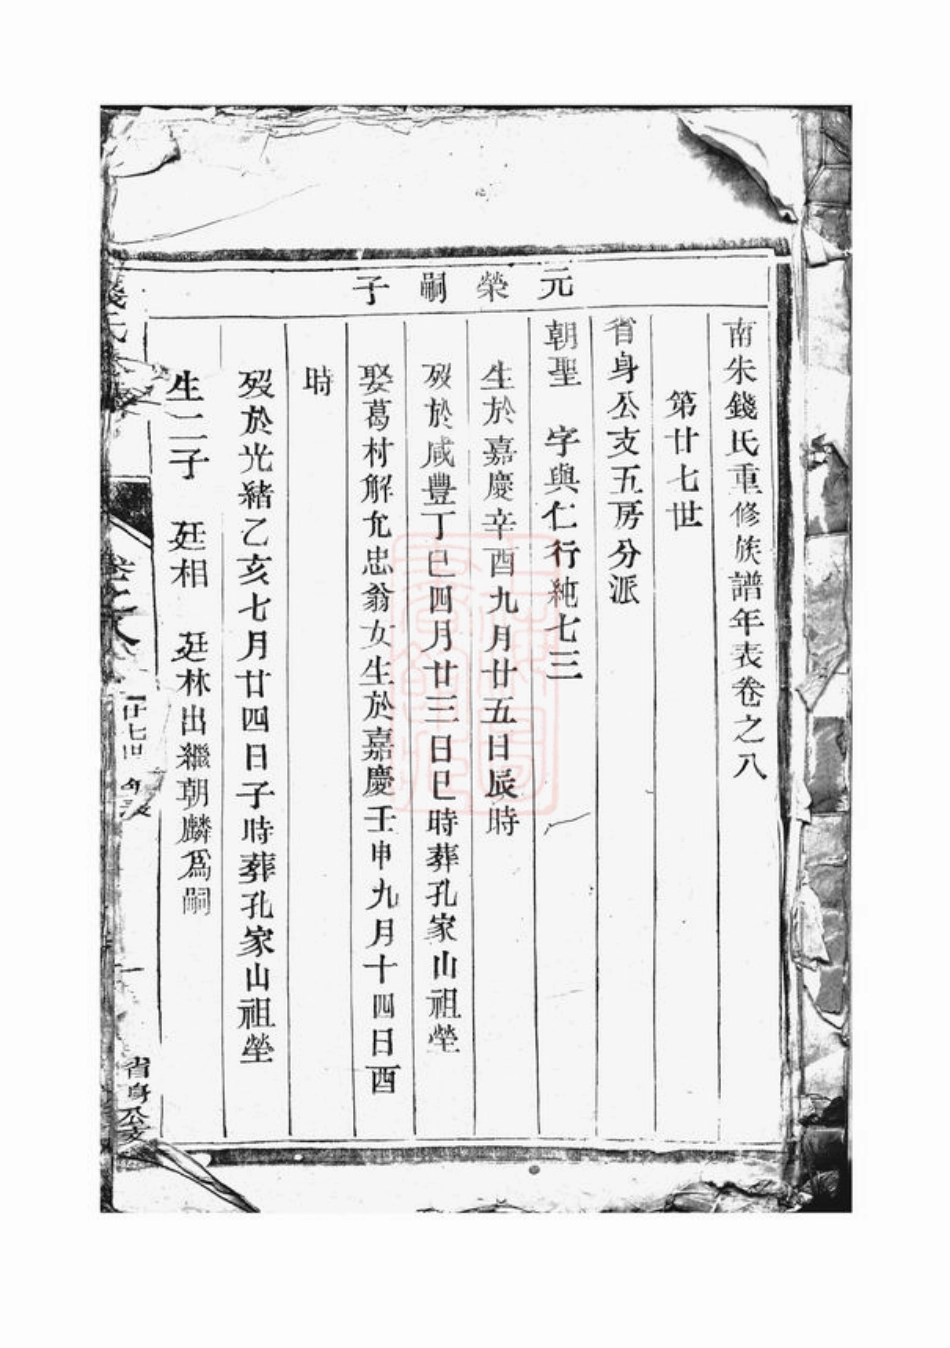 南朱錢氏重修族譜年表卷之八
第廿七世
省身公支五房分派
元榮嗣子
朝聖 字與仁行純七三
生於嘉慶辛酉九月廿五日辰時
歿於咸豐丁巳四月廿三日巳時葬孔家山祖塋
娶葛村解允忠翁女生於嘉慶壬申九月十四日酉
時
歿於光緒乙亥七月廿四日子時葬孔家山祖塋
生二子 廷相 廷林出繼朝麟爲嗣
卷之八
廿七世 年表
一
省身公支